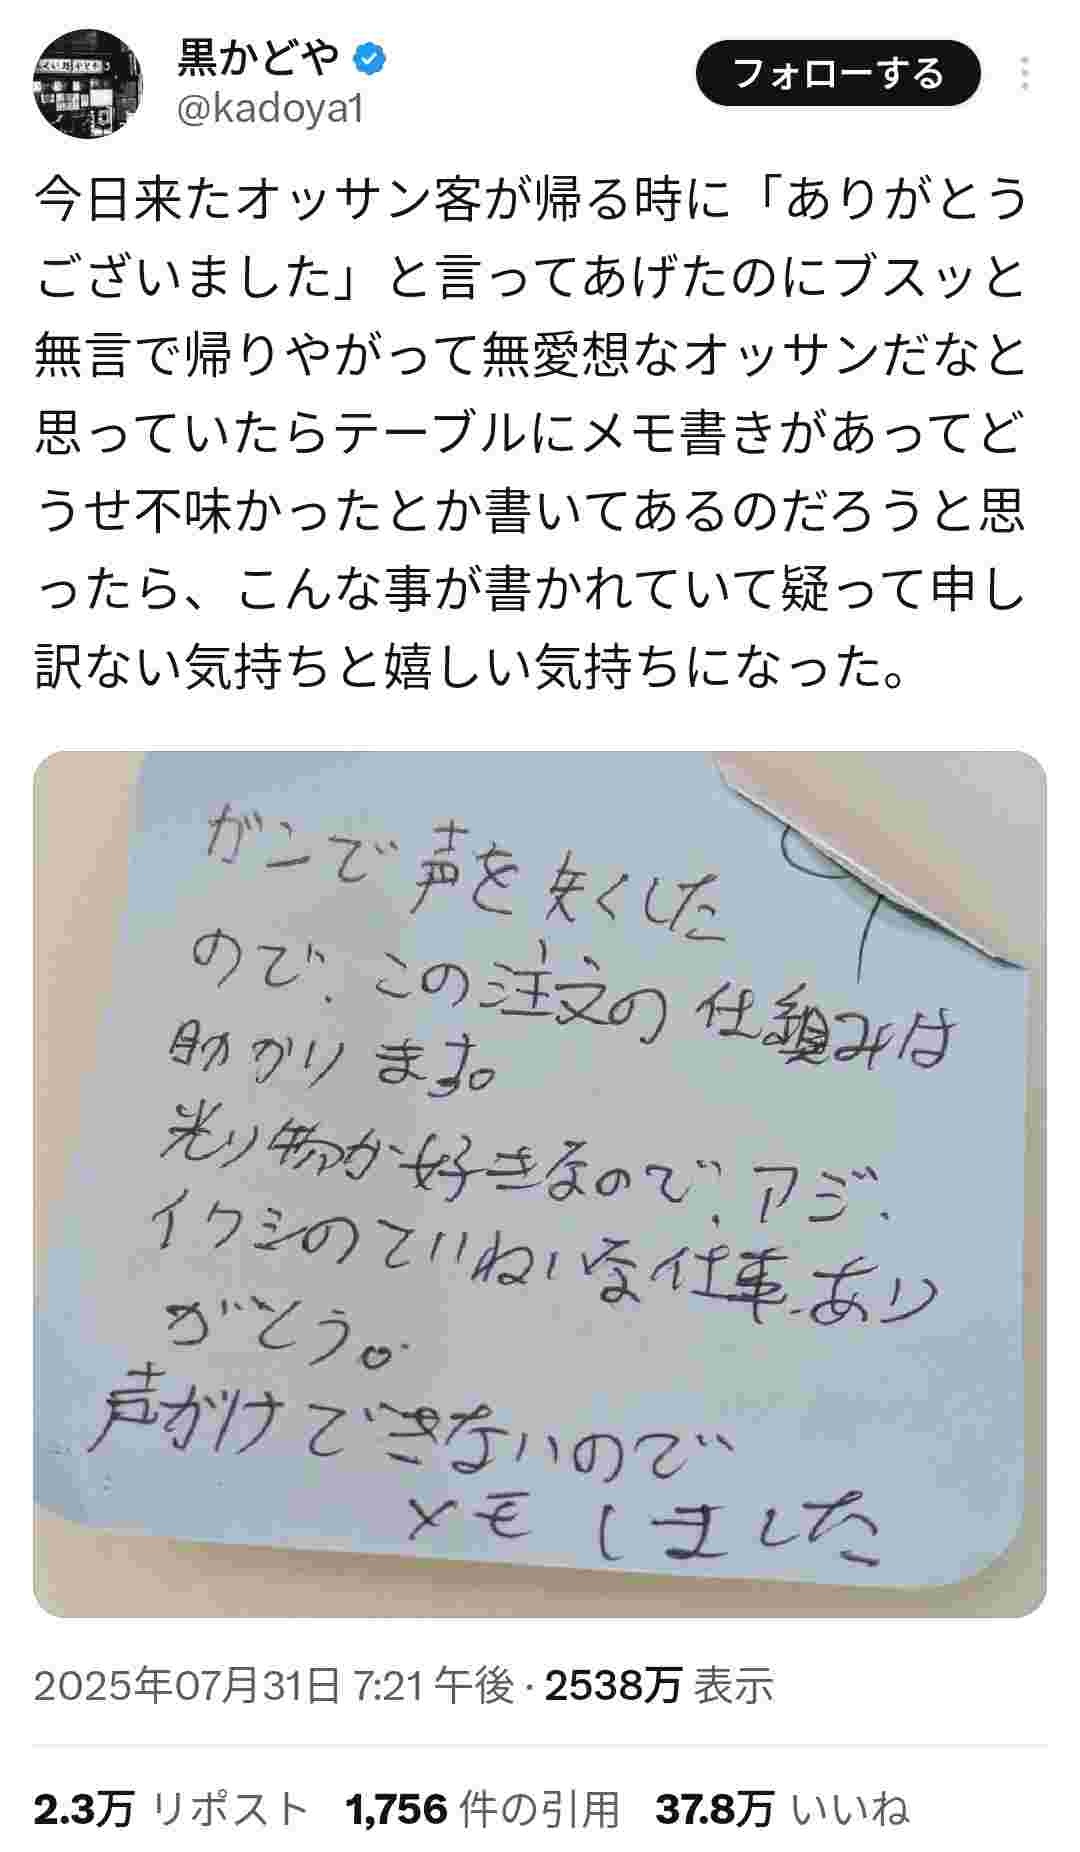 黒かどや
@kadoya1
フォローする
今日来たオッサン客が帰る時に「ありがとう
ございました」と言ってあげたのにブスッと
無言で帰りやがって無愛想なオッサンだなと
思っていたらテーブルにメモ書きがあってど
うせ不味かったとか書いてあるのだろうと思
ったら、こんな事が書かれていて疑って申し
訳ない気持ちと嬉しい気持ちになった。
ガンで声を失くした
ので、この注文の仕組みは
助かります。
光り物が好きなので、アジ、
イワシのていねいな仕事、あり
がとう。
声がけできないので
メモしました
2025年07月31日 7:21 午後 · 2538万 表示
2.3万 リポスト 1,756 件の引用 37.8万 いいね